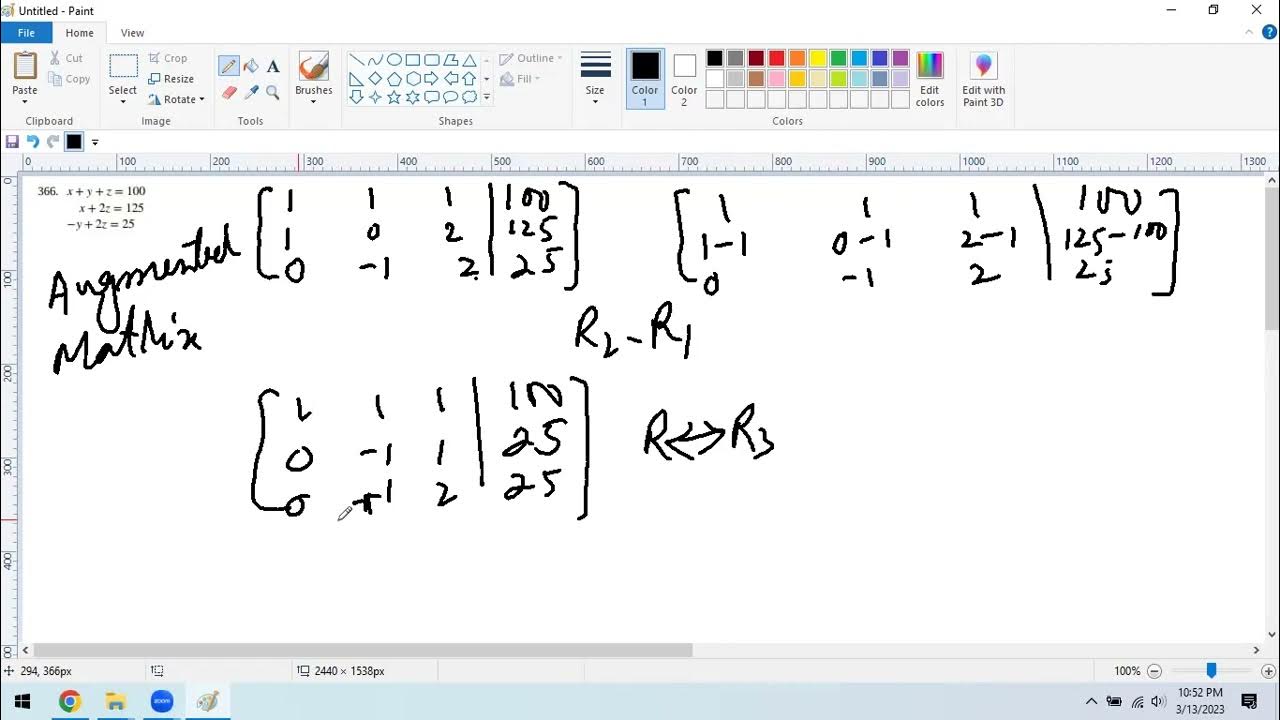 Untitled - Paint
File Home View
Paste
Cut
Copy
Clipboard
Select
Crop
Resize
Rotate
Image
A
Tools
Brushes
Outline
Fill
Shapes
Size
Color 1
Color 2
Edit colors
Edit with Paint 3D
Colors
0 100 200 300 400 500 600 700 800 900 1000 1100 1200 1300
0
100
200
300
400
500
366. x + y + z = 100
x + 2z = 125
−y + 2z = 25
Augmented
Matrix
1 1 1 | 100
1 0 2 | 125
0 -1 2 | 25
1 1 1 | 100
1-1 0-1 2-1 | 125-100
0 -1 2 | 25
R2 - R1
1 1 1 | 100
0 -1 1 | 25
0 -1 2 | 25
R ↔ R3
294, 366px
2440 × 1538px
100%
zoom
10:52 PM
3/13/2023